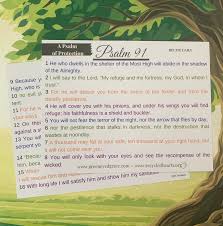 A Psalm
of Protection
Psalm 91
1 He who dwells in the shelter of the Most High will abide in the shadow
of the Almighty.
2 I will say to the Lord, "My refuge and my fortress, my God, in whom I
trust".
3 For he will deliver you from the snare of the fowler and from the
deadly pestilence.
4 He will cover you with his pinions, and under his wings you will find
refuge; his faithfulness is a shield and buckler.
5 You will not fear the terror of the night, nor the arrow that flies by day,
6 nor the pestilence that stalks in darkness, nor the destruction that
wastes at noonday.
7 A thousand may fall at your side, ten thousand at your right hand, but
it will not come near you.
8 You will only look with your eyes and see the recompense of the
wicked
9 Because y
High, who is
10 no evil
11 For he w
your way
12 On the
13 You w
serpent yo
14 "Becau
him, beca
15 When
I will rescue him and
16 With long life I will satisfy him and show him my